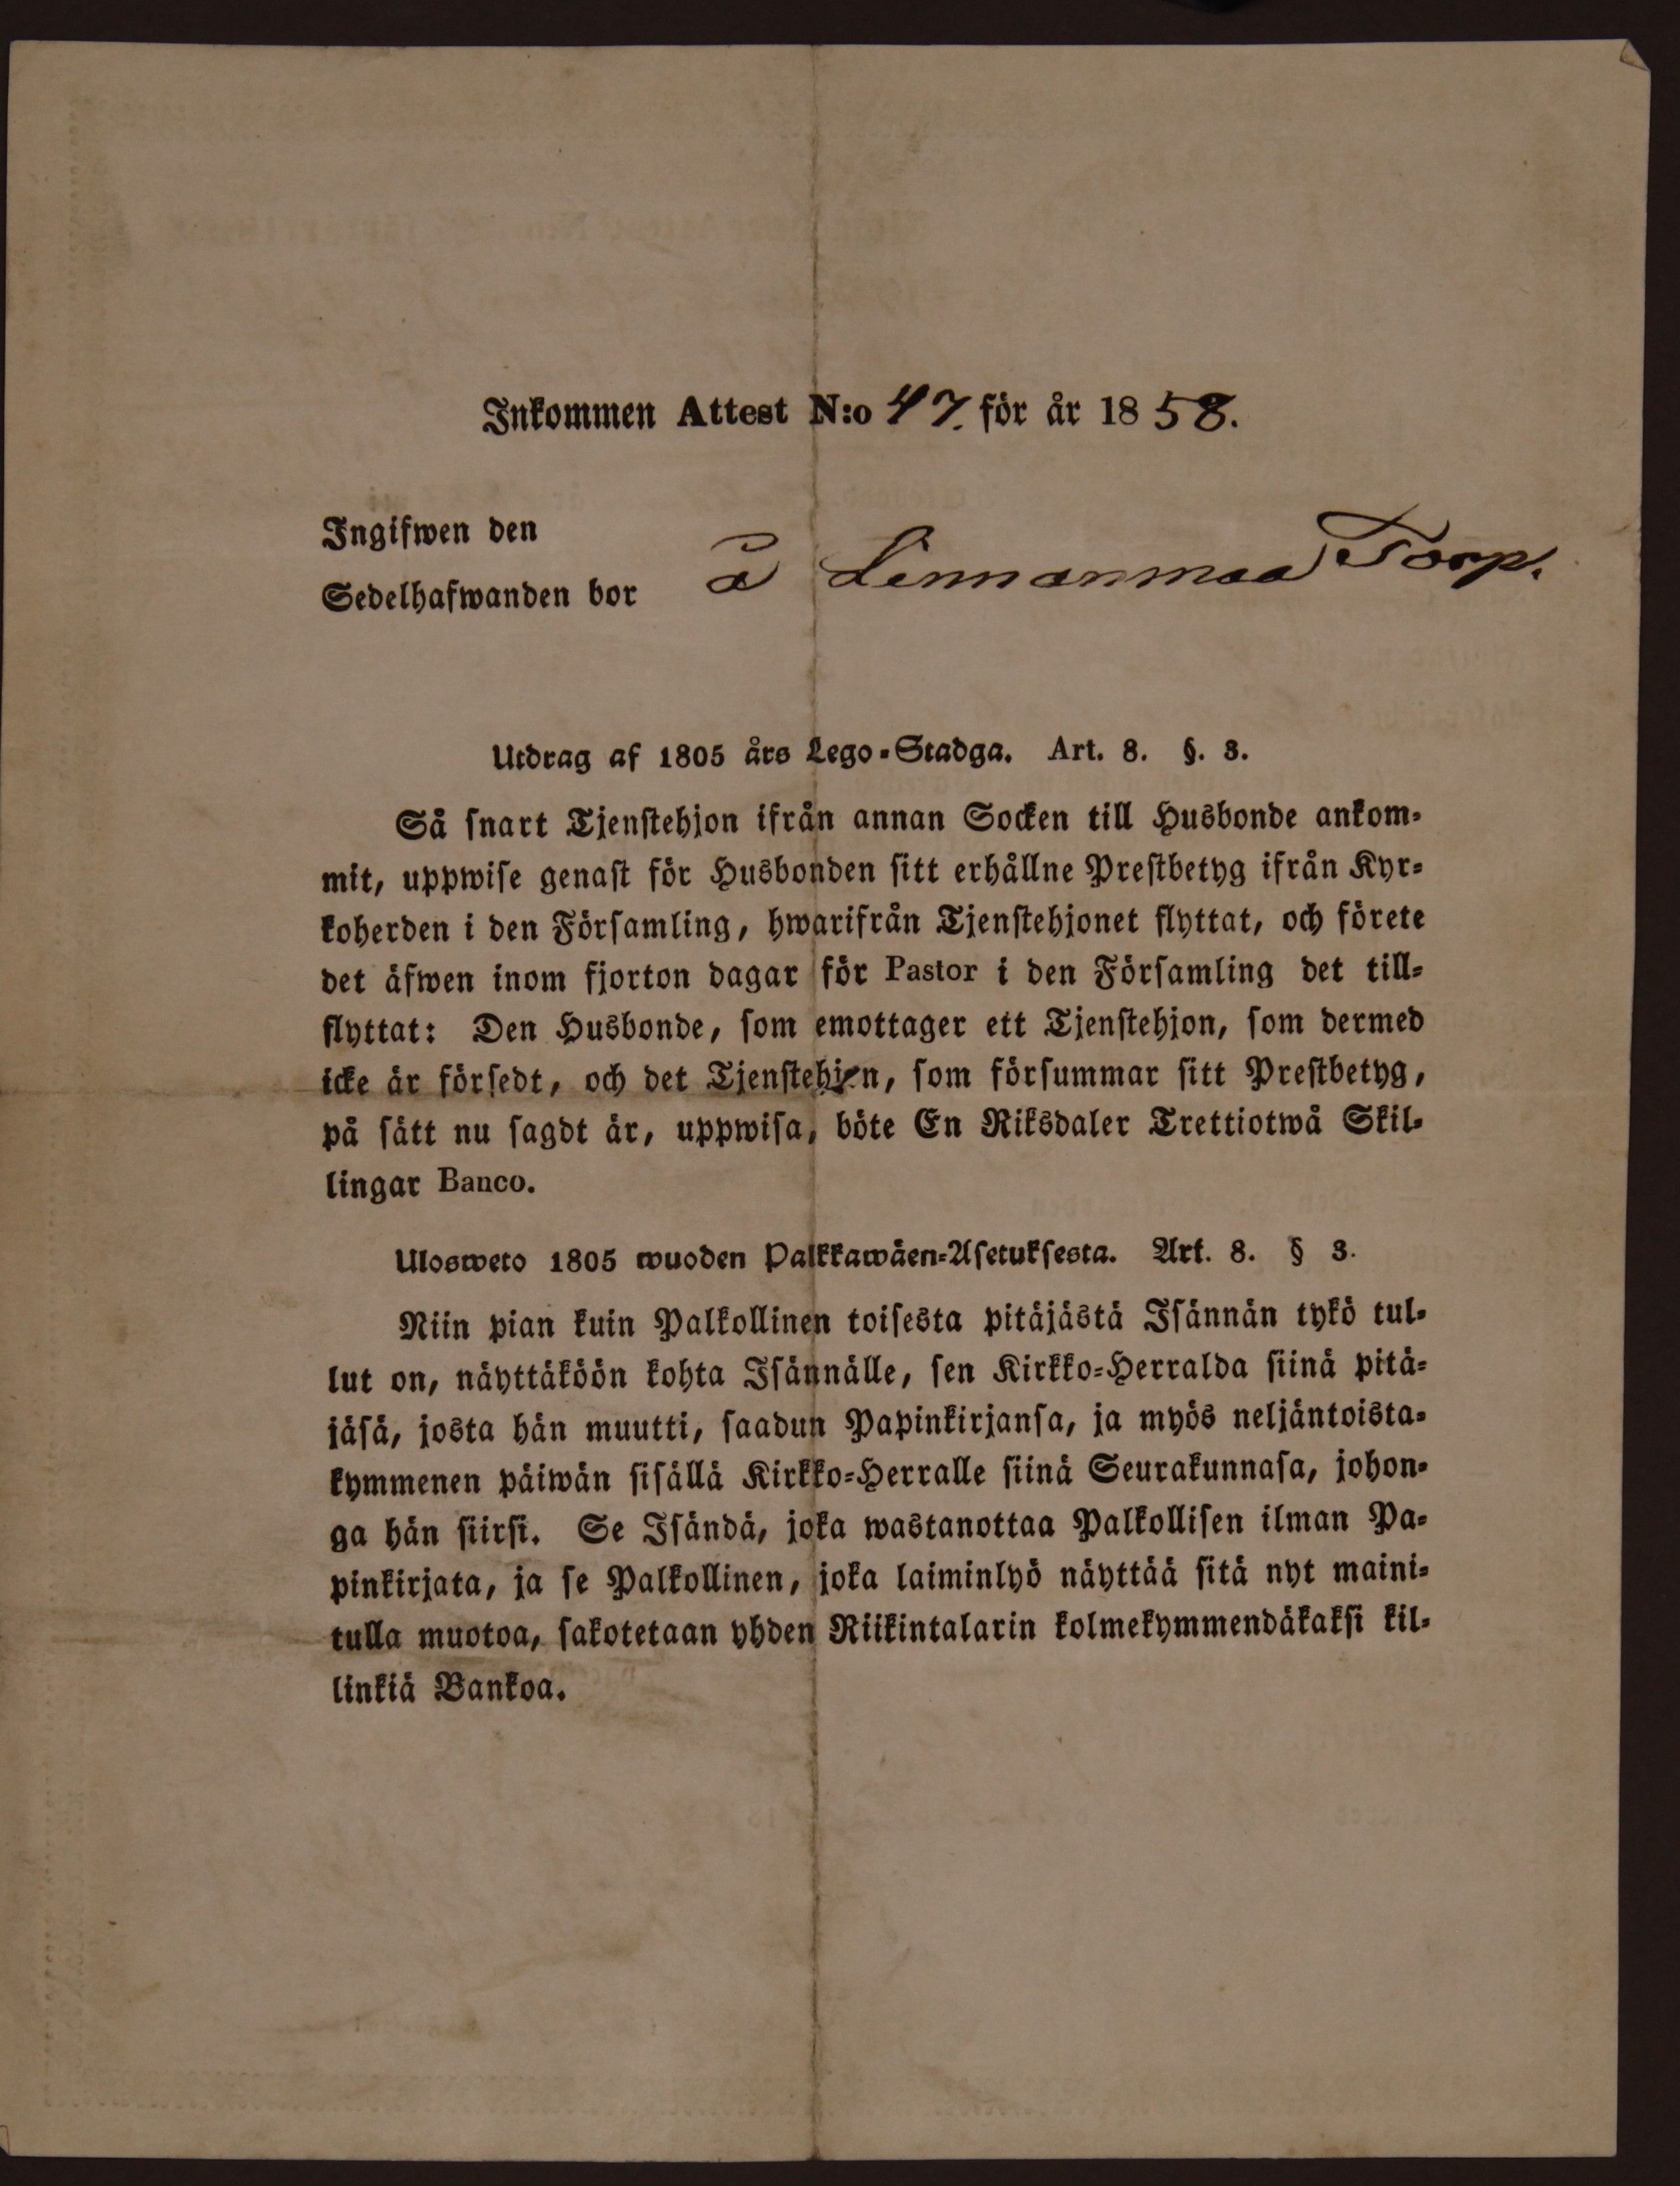 Inkommen Attest N:o 47. för år 1858.
Ingifwen den
Sedelhafwanden bor å Linnanmaa Torp.
Utdrag af 1805 års Lego-Stadga. Art. 8. §. 3.
Så snart Tjenstehjon ifrån annan Socken till Husbonde ankom-
mit, uppwise genast för Husbonden sitt erhållne Prestbetyg ifrån Kyr-
koherden i den Församling, hwarifrån Tjenstehjonet flyttat, och förete
det äfwen inom fjorton dagar för Pastor i den Församling det till-
flyttat: Den Husbonde, som emottager ett Tjenstehjon, som dermed
icke är försedt, och det Tjenstehjon, som försummar sitt Prestbetyg,
på sätt nu sagdt är, uppwisa, böte En Riksdaler Trettiotwå Skil-
lingar Banco.
Ulosweto 1805 wuoden Palkkawäen-Asetuksesta. Art. 8. § 3.
Niin pian kuin Palkollinen toisesta pitäjästä Isännän tykö tul-
lut on, näyttäköön kohta Isännälle, sen Kirkko-Herralda siinä pitä-
jäsä, josta hän muutti, saadun Papinkirjansa, ja myös neljäntoista-
kymmenen päiwän sisällä Kirkko-Herralle siinä Seurakunnasa, johon-
ga hän siirsi. Se Isändä, joka wastanottaa Palkollisen ilman Pa-
pinkirjata, ja se Palkollinen, joka laiminlyö näyttää sitä nyt maini-
tulla muotoa, sakotetaan yhden Riikintalarin kolmekymmendäkaksi kil-
linkiä Bankoa.